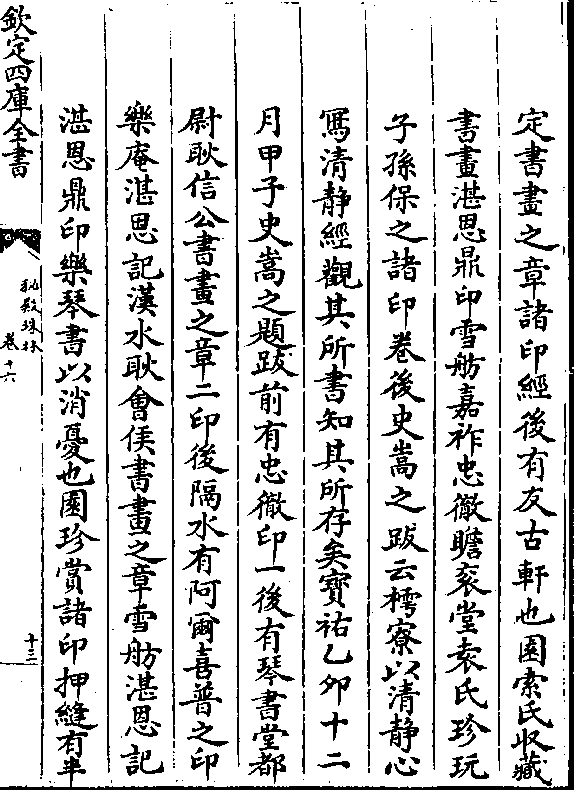 定書畫之章諸印經後有友古軒也園索氏収藏
書畫湛恩鼎印雪舫嘉祚忠徹瞻衮堂袁氏珍玩
子孫保之諸印卷後史嵩之跋云樗寮以清静心
寫清静經觀其所書知其所存矣寳祐乙夘十二
月甲子史嵩之題跋前有忠徹印一後有琴書堂都
尉耿信公書畫之章二印後隔水有阿爾喜普之印
樂庵湛恩記漢水耿會侯書畫之章雪舫湛恩記
湛恩鼎印樂琴書以消憂也園珍賞諸印押縫有半
欽定四庫全書
秘殿珠林
卷十六
十三